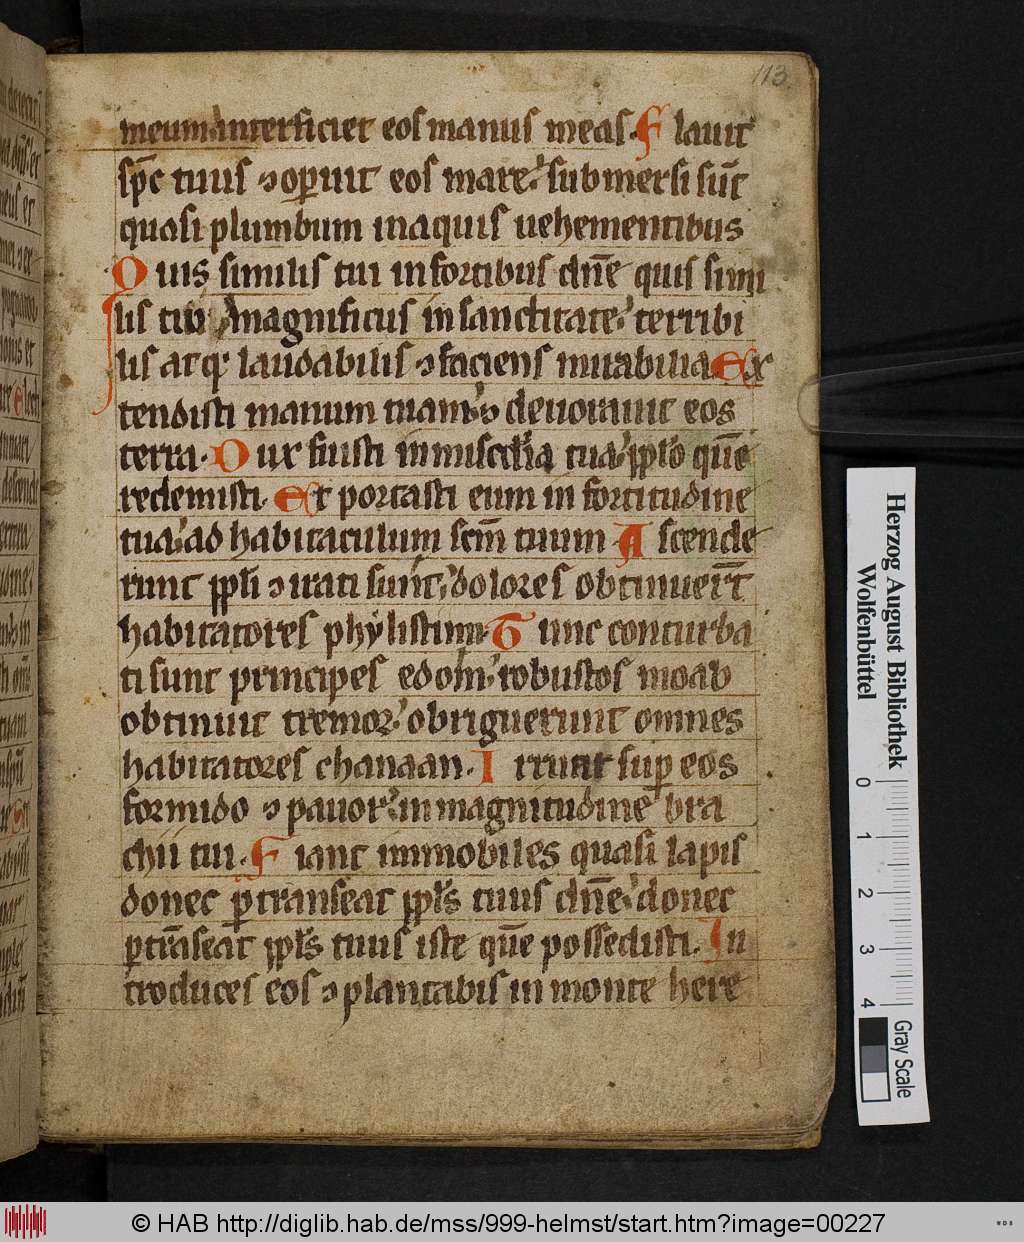 113
meum interficiet eos manus meas. Flauit
sp̄c tuus ⁊ oꝑuit eos mare. submersi sūt
quasi plumbum in aquis uehementibus
Quis similis tui in fortibus dn̄e quis simi
lis tui magnificus in sanctitate. terribi
lis atq laudabilis ⁊ faciens mirabilia Ex
tendisti manum tuam ⁊ deuorauit eos
terra. Dux fuisti in mis̄cdia tua pplo quē
redemisti. Et portasti eum in fortitudine
tua ad habitaculum sc̄m tuum. Ascende
runt ppli ⁊ irati sunt. dolores obtinuer̄t
habitatores phylistim. Tunc conturba
ti sunt principes edom. robustos moab
obtinuit tremor. obriguerunt omnes
habitatores chanaan. Irruat suꝑ eos
formido ⁊ pauor. in magnitudine bra
chii tui. Fiant immobiles quasi lapis
donec ꝑtranseat ppl's tuus dn̄e. donec
ꝑtrāseat ppl's tuus iste quē possedisti. In
troduces eos ⁊ plantabis in monte here
Herzog August Bibliothek
Wolfenbüttel
0
1
2
3
4
Gray Scale
© HAB http://diglib.hab.de/mss/999-helmst/start.htm?image=00227